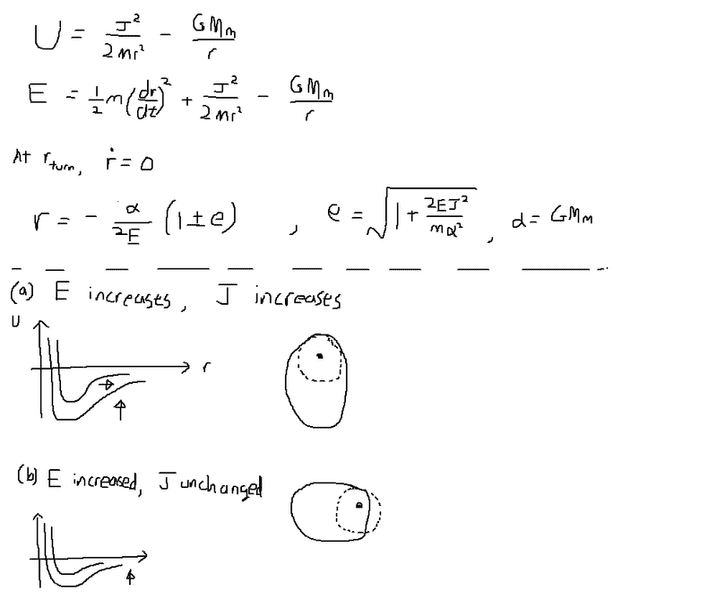 U = J²/2mr² - GMm/r
E = ½m(dr/dt)² + J²/2mr² - GMm/r
At r_turn, ṙ = 0
r = - α/2E (1 ± e) , e = √(1 + 2EJ²/mα²) , α = GMm
(a) E increases, J increases
U
r
(b) E increased, J unchanged